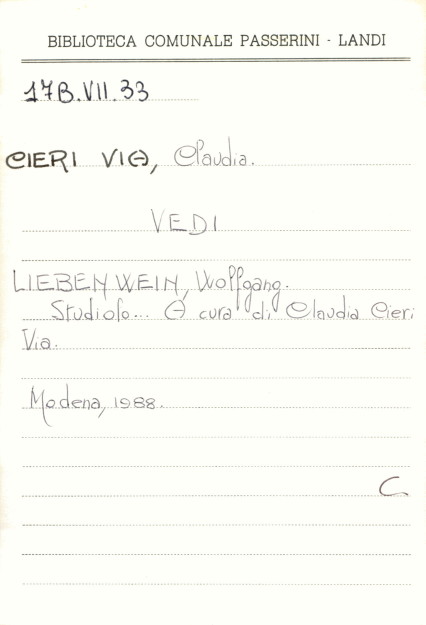 BIBLIOTECA COMUNALE PASSERINI - LANDI
17B.VII.33
CIERI VIA, Claudia.
VEDI
LIEBENWEIN, Wolfgang.
Studiolo... A cura di Claudia Cieri
Via.
Modena, 1988.
C